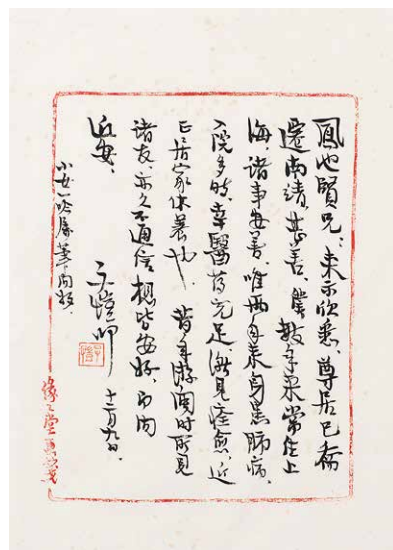 鳳池賢兄：来示欣悉，尊居已喬
遷南靖，甚善。僕數年来常住上
海，諸事安善，唯兩年来身患肺病，
入院多時，幸醫葯充足，漸見痊愈，近
已居家休養也。昔年游閩時所見
諸友，亦久不通信，想皆安好。即問
近安。
子愷叩 十二月九日
小女一吟屬筆問好.
子愷